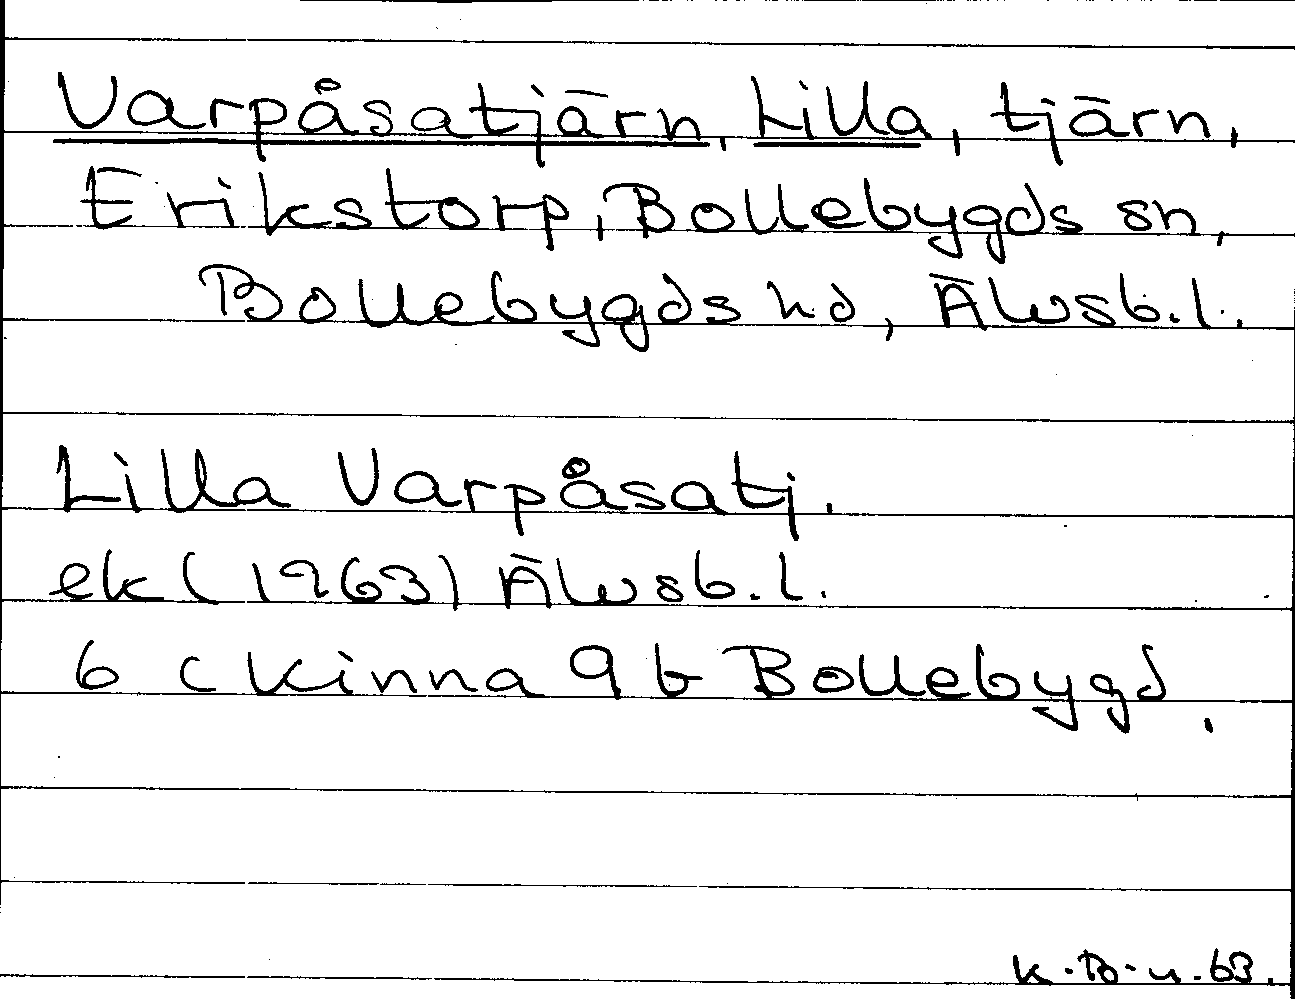 Varpåsatjärn, Lilla, tjärn,
Erikstorp, Bollebygds sn,
Bollebygds hd, Älvsb.l.
Lilla Varpåsatj.
ek (1963) Älvsb.l.
6 c Kinna 9 b Bollebygd.
K.B-n.63.